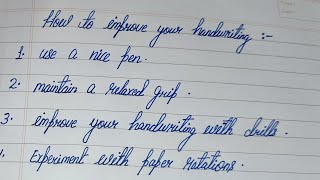 How to improve your handwriting :-
1. use a nice pen.
2. maintain a relaxed grip.
3. improve your handwriting with drills.
4. Experiment with paper rotations.